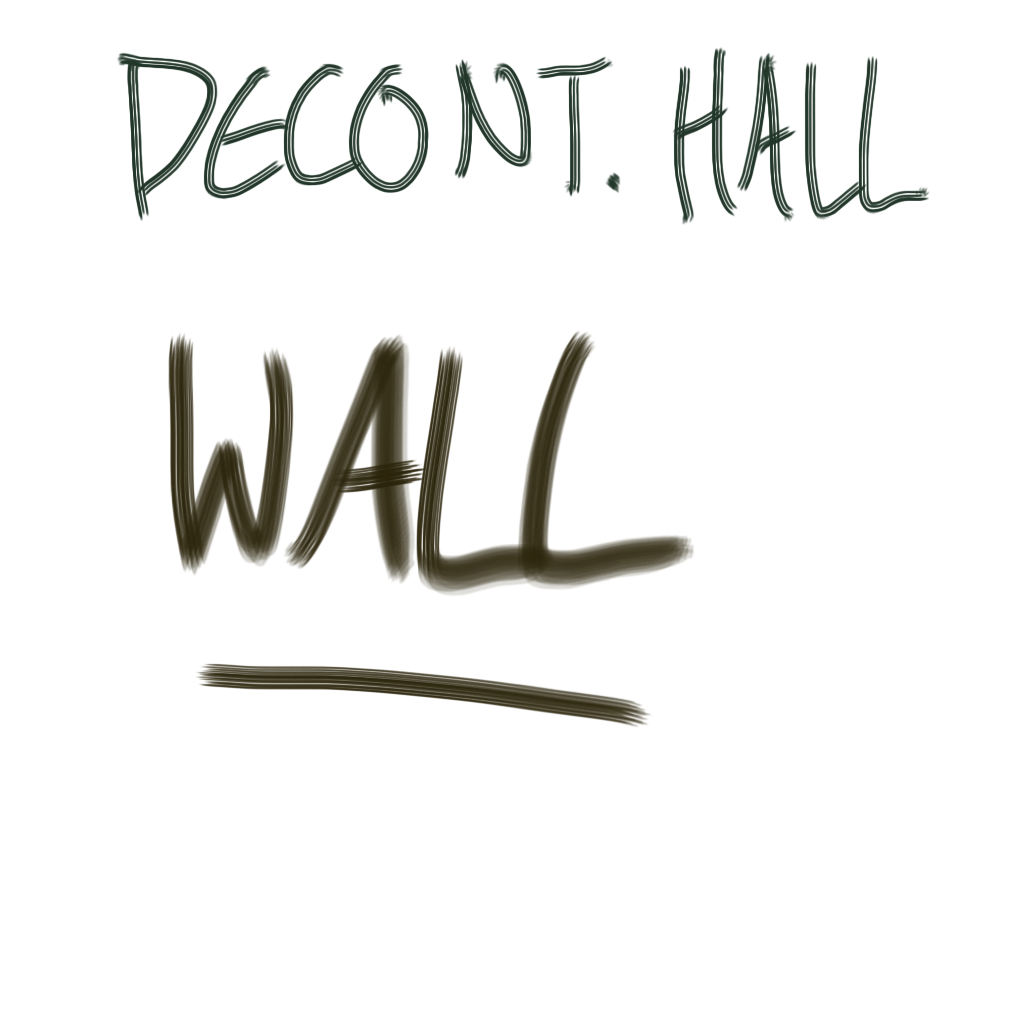 DECONT. HALL
WALL